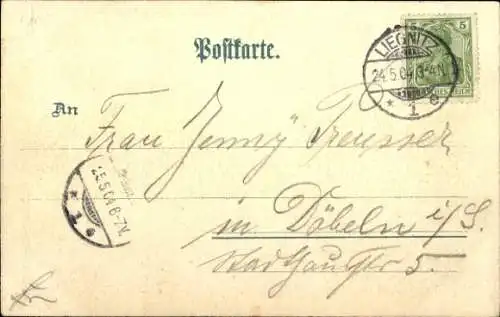 Postkarte.
5
LIEGNITZ
24.5.04.3-4N.
* 1 e
An
Frau Jenny Preusser
25.5.04.6-7N.
* 1 e
in Döbeln i/S.
Stadthausstr 5.